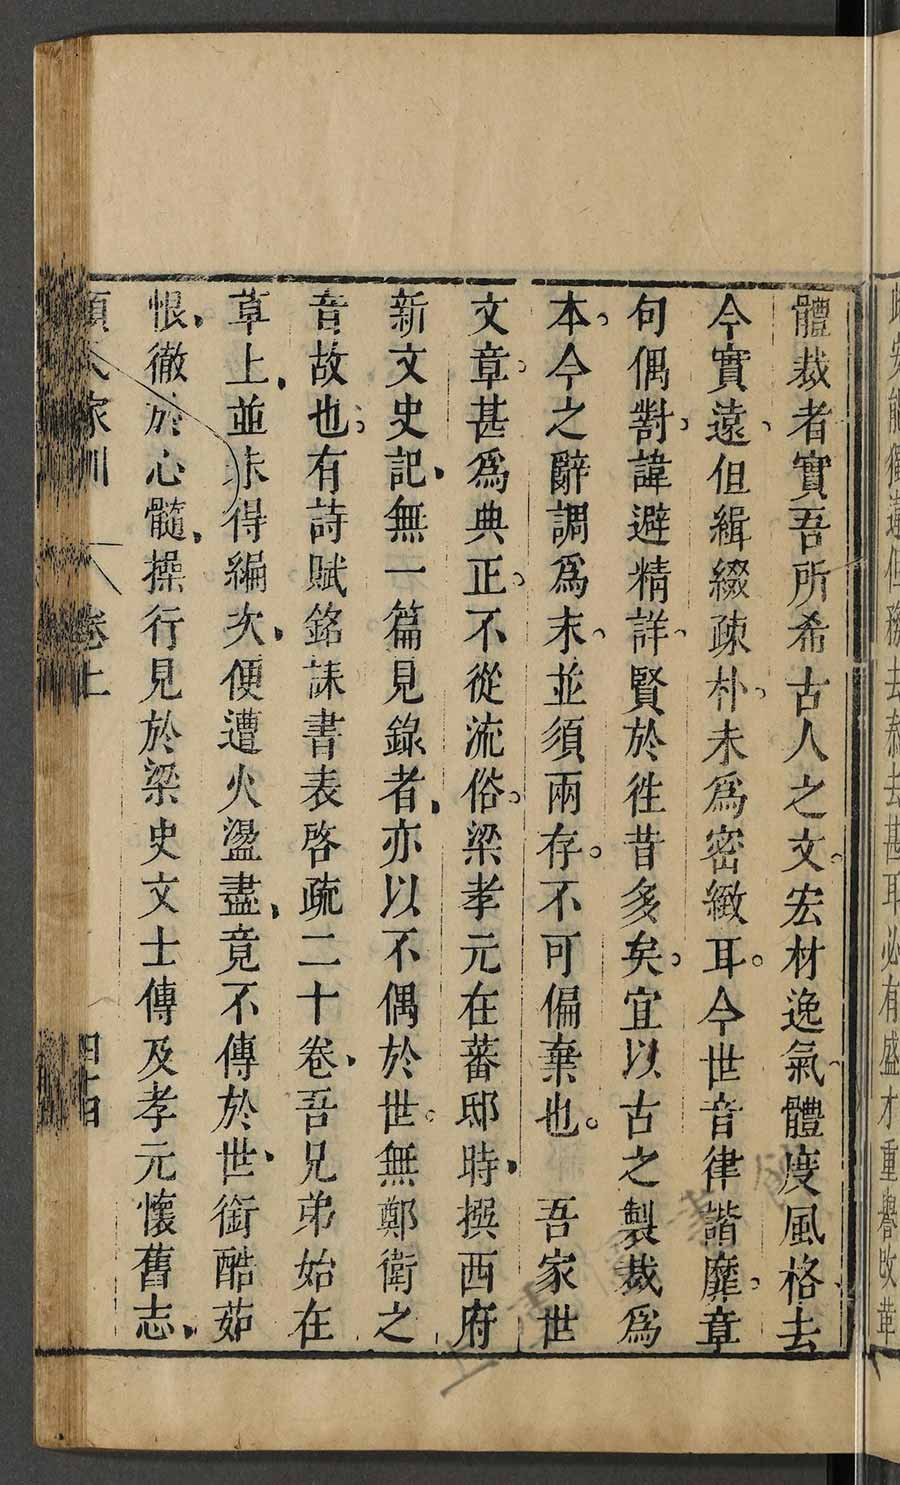 體裁者實吾所希古人之文宏材逸氣體度風格去
今實遠但緝綴疎朴未爲密緻耳今世音律諧靡章
句偶對諱避精詳賢於徃昔多矣宜以古之製裁爲
本今之辭調爲末並須兩存不可偏棄也　吾家世
文章甚爲典正不從流俗梁孝元在蕃邸時撰西府
新文史記無一篇見錄者亦以不偶於世無鄭衛之
音故也有詩賦銘誄書表啓疏二十卷吾兄弟始在
草上並未得編次便遭火盪盡竟不傳於世銜酷茹
恨徹於心髓操行見於梁史文士傳及孝元懷舊志
家訓
卷上